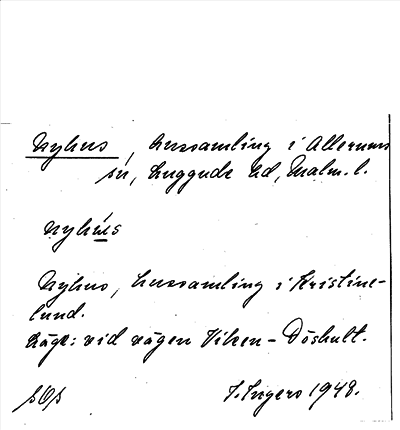 Nyhus, hussamling i Allerums
sn, Luggude hd, Malm. l.
nyhú̲s
Nyhus, hussamling i Kristine-
lund.
Läge: vid vägen Viken - Döshult.
I. Ingers 1948.